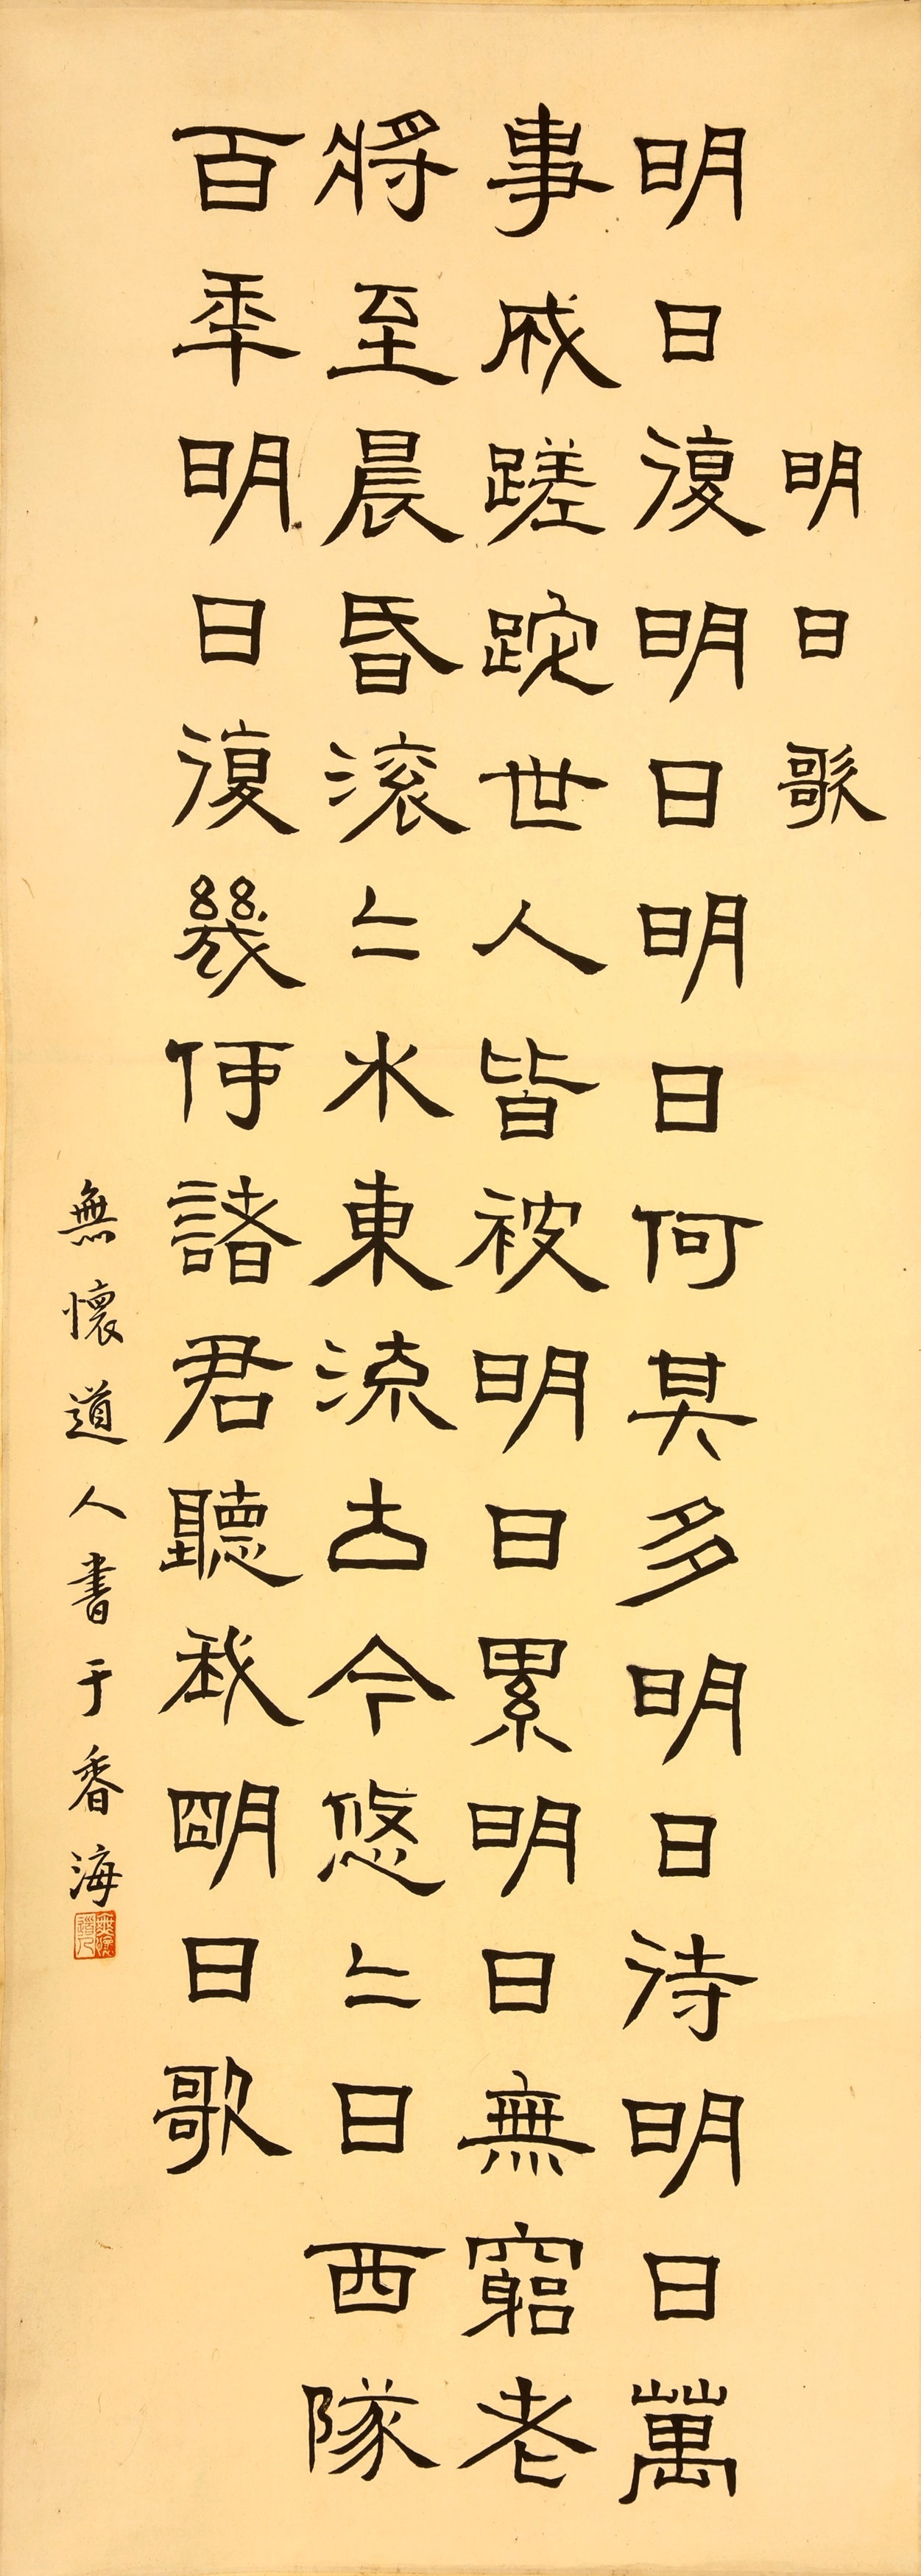 明日歌
明日復明日明日何其多明日待明日萬
事成蹉跎世人皆被明日累明日無窮老
將至晨昏滾〻水東流古今悠〻日西隊
百年明日復幾何諸君聽我朙日歌
無懷道人書于香海
無懷道人